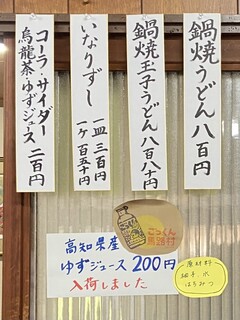 鍋焼うどん八百円
鍋焼玉子うどん八百八十円
いなりずし
一皿 三百円
一ケ 百五十円
コーラ・サイダー
烏龍茶・ゆずジュース 二百円
ごっくん
馬路村
高知県産
ゆずジュース 200円
入荷しました
原材料
柚子、水
はちみつ